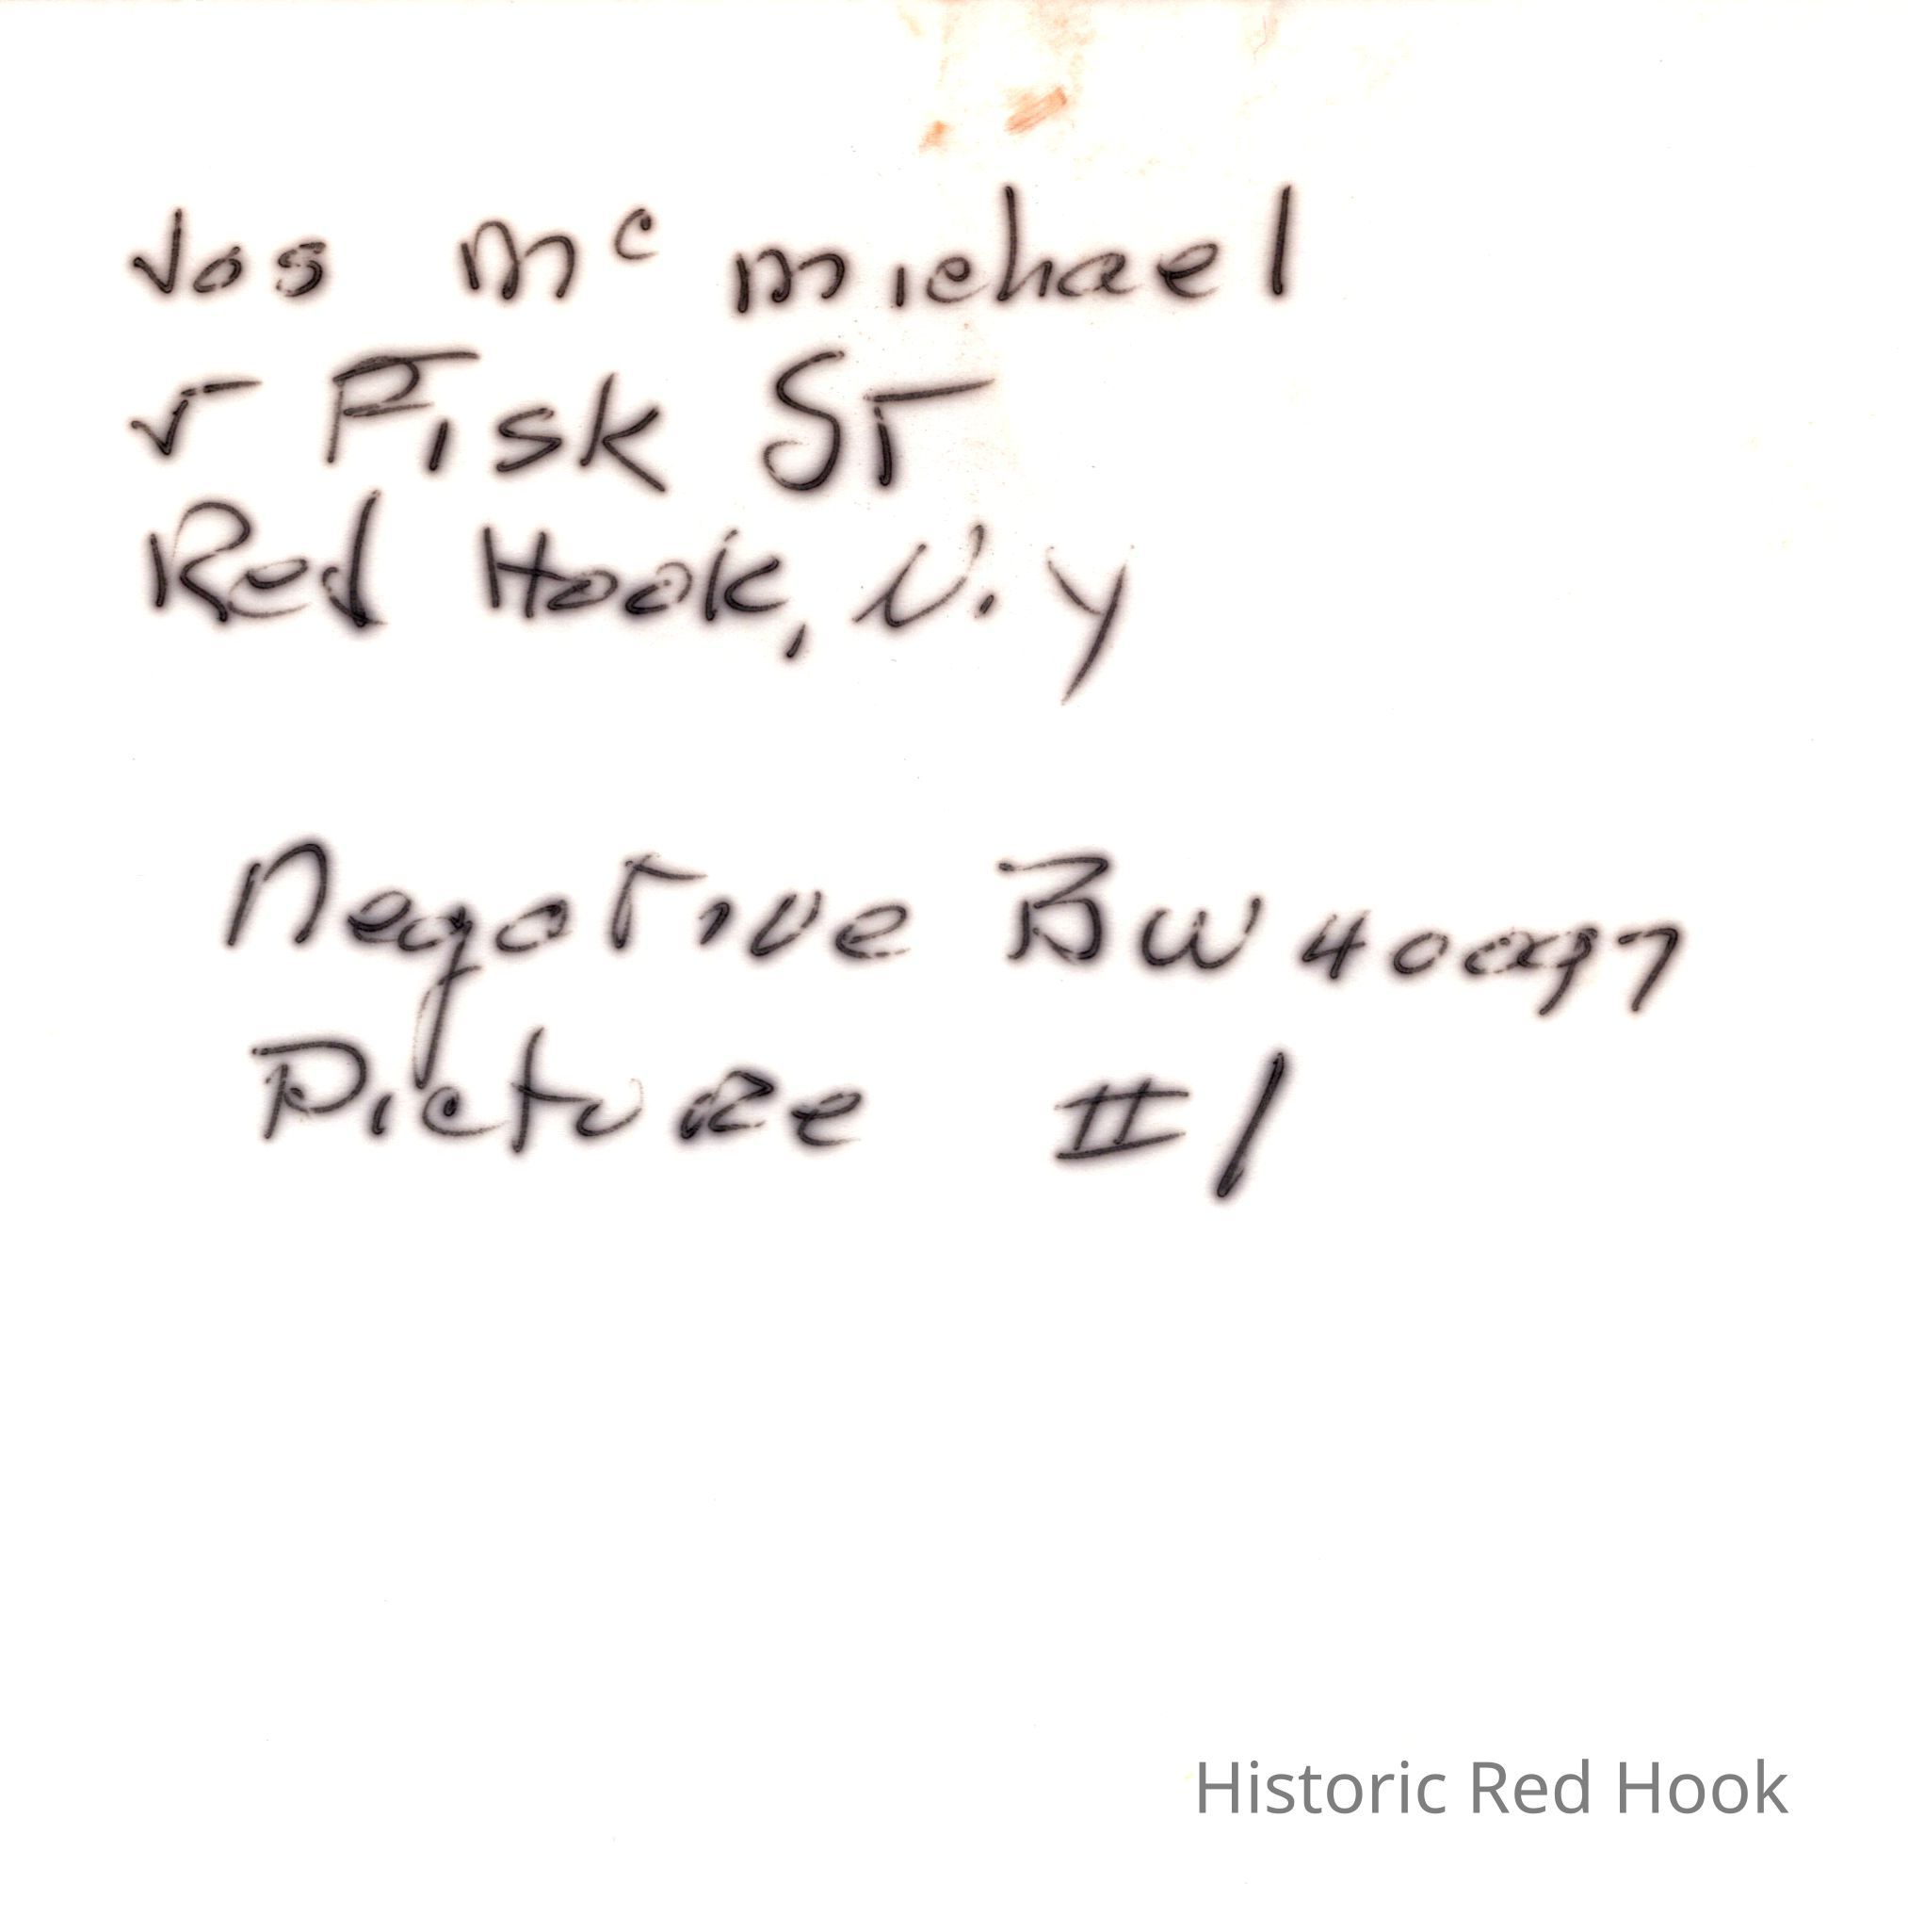 Jos Mc michael
5 Fisk ST
Red Hook, N.Y
Negative BW
Picture #1
Historic Red Hook